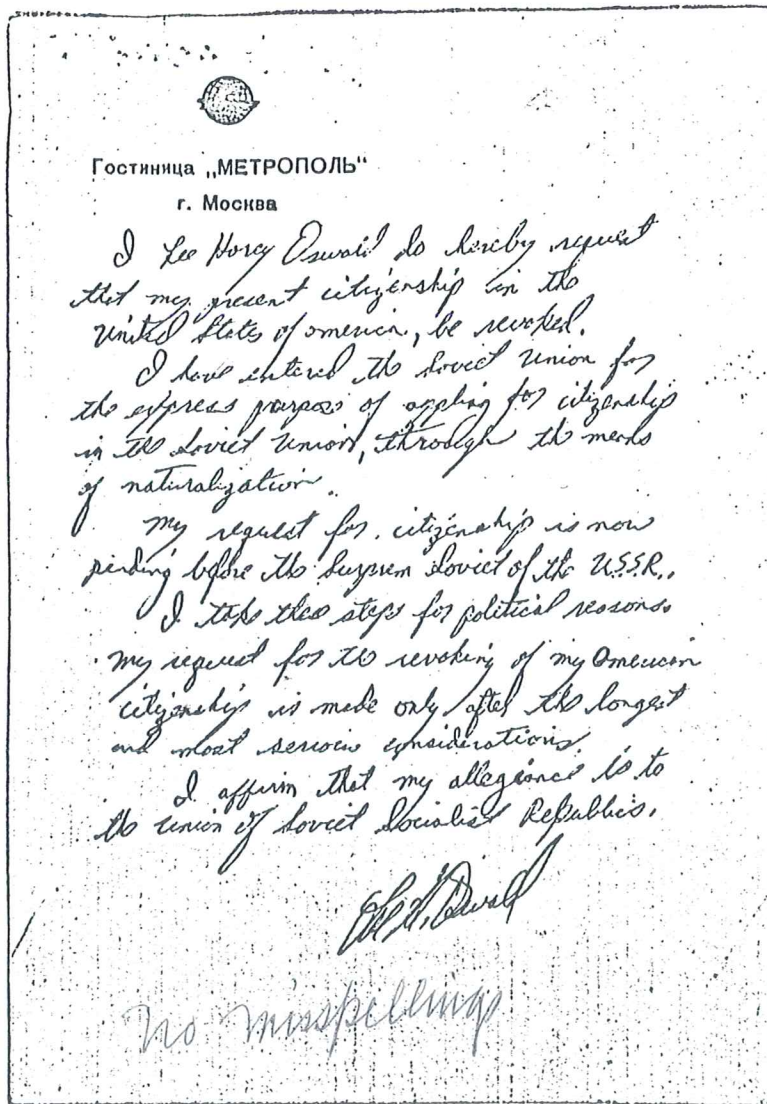 Гостиница „МЕТРОПОЛЬ"
г. Москва
I Lee Harey Oswald do hereby request
that my present citizenship in the
United States of america, be revoked.
I have entered the Soviet Union for
the express purpose of appling for citizenship
in the Soviet Union, through the means
of naturalization.
My request for citizenship is now
pending before the Suprem Soviet of the U.S.S.R..
I take these steps for political reasons.
My request for the revoking of my American
citizenship is made only after the longest
and most serious considerations.
I affirm that my allegiance is to
the Union of Soviet Socialist Republics.
Lee H. Oswald
No misspellings